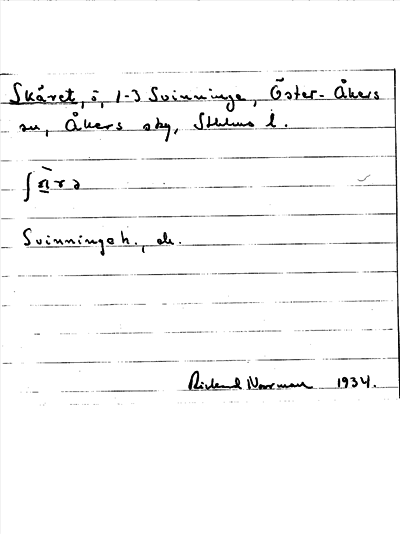 Skäret, ö, 1-3 Svinninge, Öster-Åkers
sn, Åkers skg, Sthlms l.
Svinningeh., ek.
Rickard Norrman 1934.